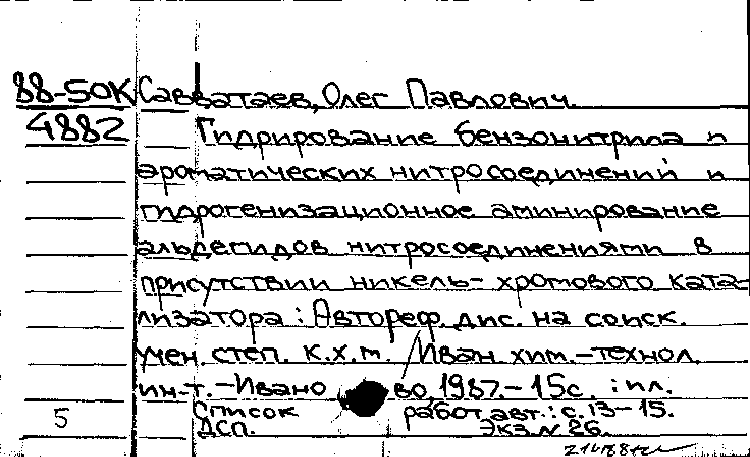 88-50К Савватаев, Олег Павлович.
4882 Гидрирование бензонитрила и
ароматических нитросоединений и
гидрогенизационное аминирование
альдегидов нитросоединениями в
присутствии никель-хромового ката-
лизатора : Автореф. дис. на соиск.
учен. степ. к.х.н. / Иван. хим.-технол.
ин-т. - Ивано во, 1987. - 15с. : ил.
5 Список работ авт.: с. 13-15.
ДСП. Экз. N 26.